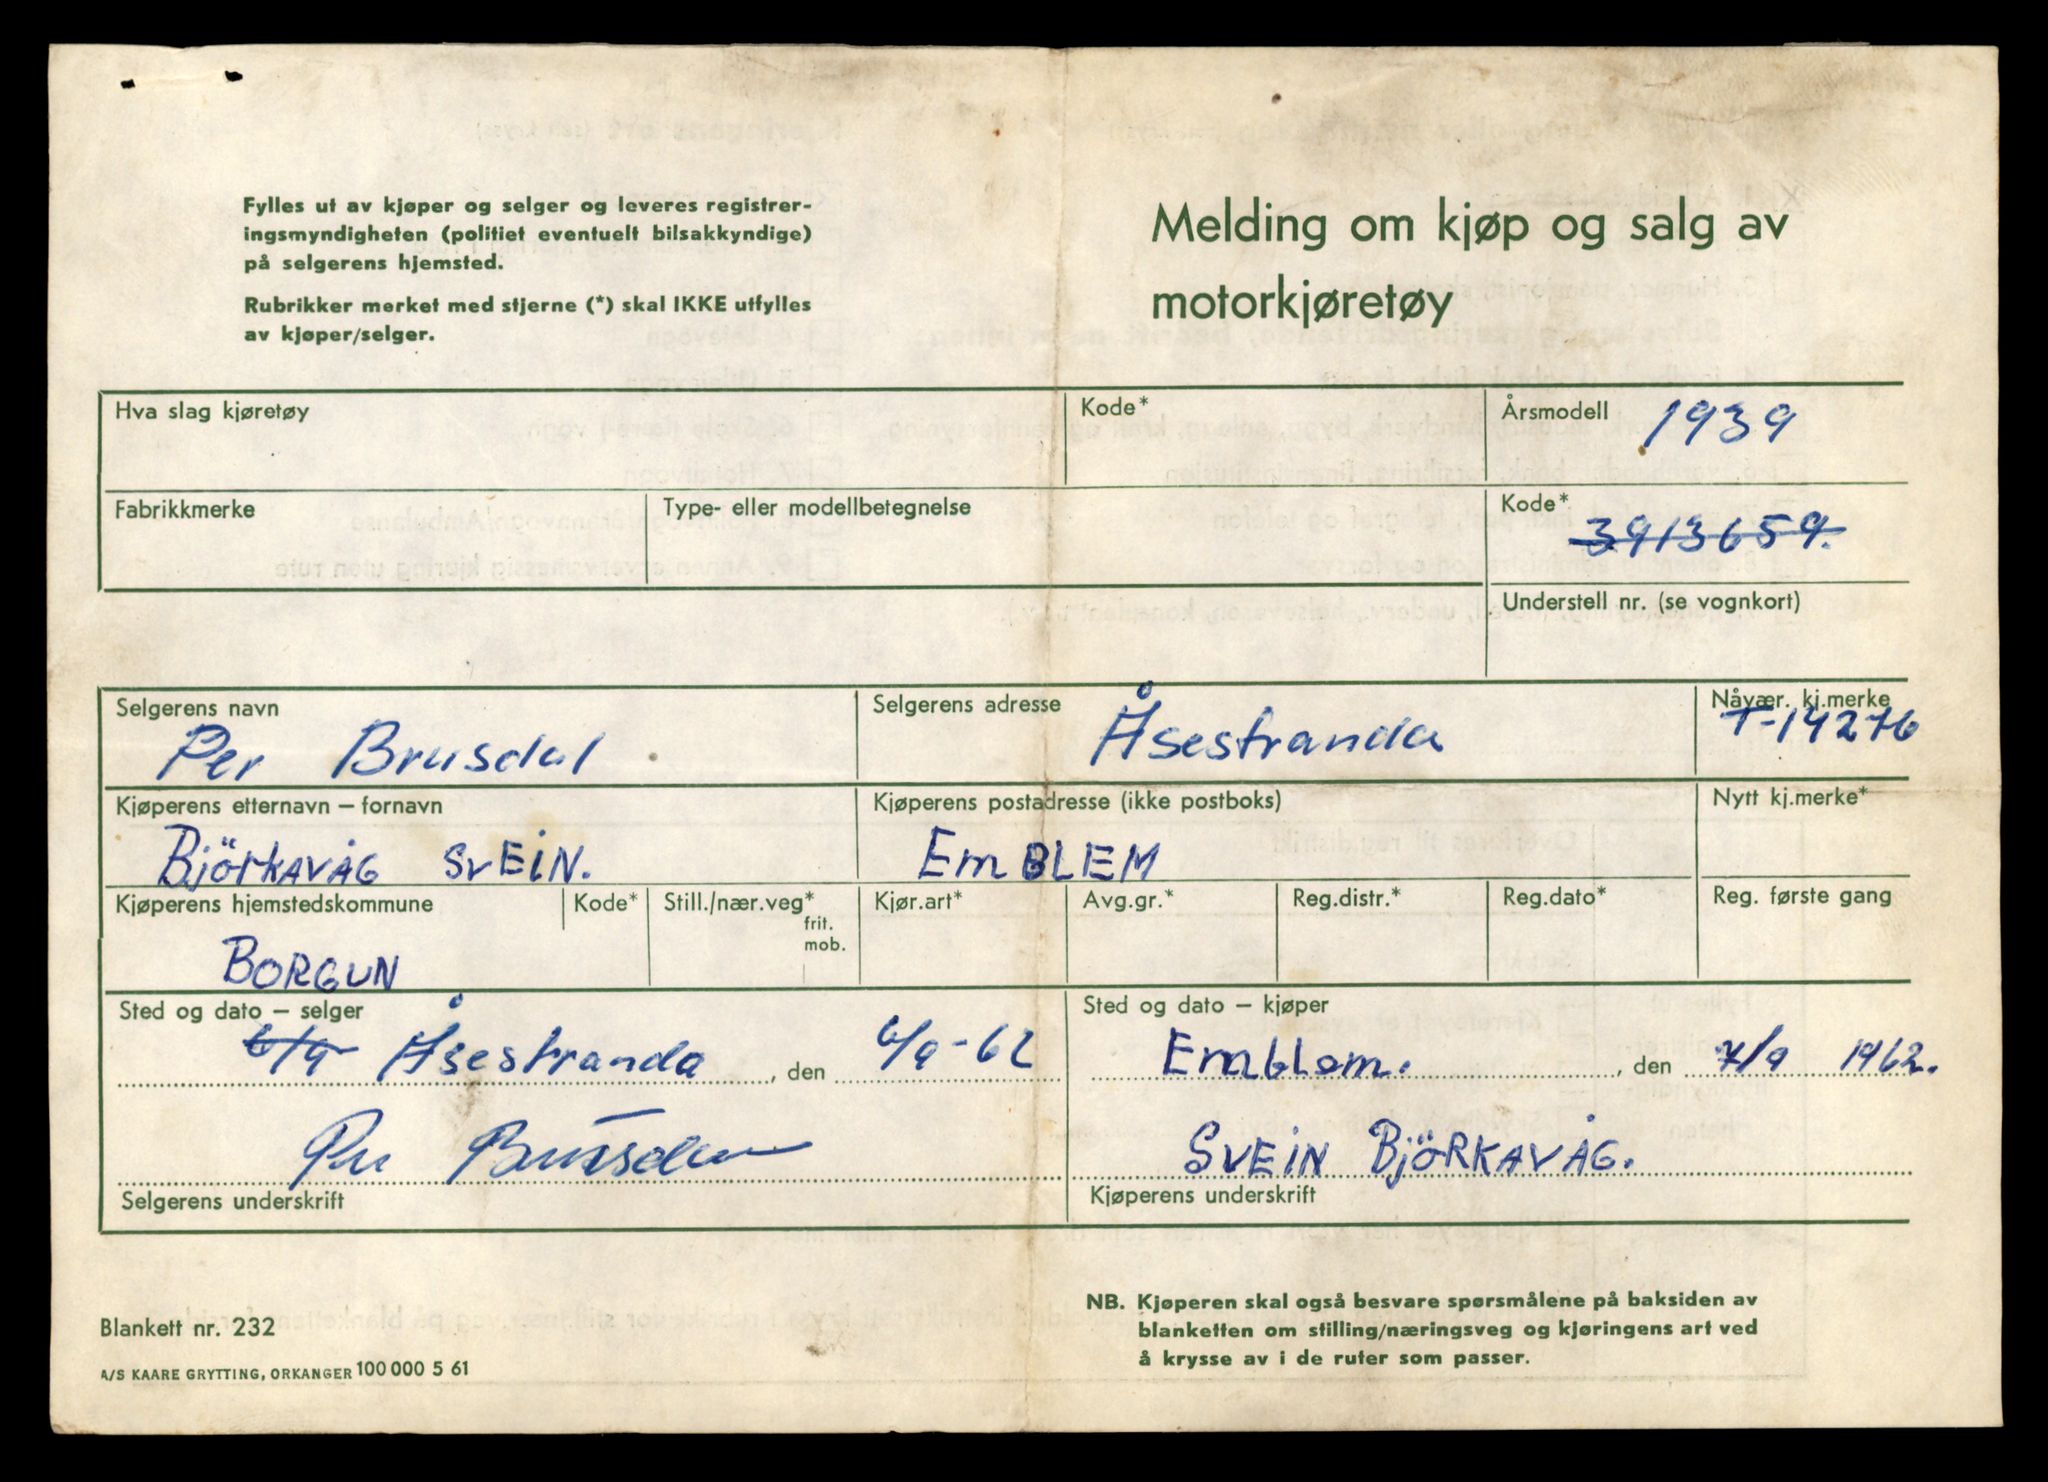 Fylles ut av kjøper og selger og leveres registrer-
ingsmyndigheten (politiet eventuelt bilsakkyndige)
på selgerens hjemsted.
Rubrikker merket med stjerne (*) skal IKKE utfylles
av kjøper/selger.
Melding om kjøp og salg av
motorkjøretøy
Hva slag kjøretøy
Kode*
Årsmodell
1939
Fabrikkmerke
Type- eller modellbetegnelse
Kode*
3913659.
Understell nr. (se vognkort)
Selgerens navn
Per Brusdal
Selgerens adresse
Åsestranda
Nåvær. kj.merke
T-14276
Kjøperens etternavn – fornavn
BJÖRKAVÅG SVEIN.
Kjøperens postadresse (ikke postboks)
EMBLEM
Nytt kj.merke*
Kjøperens hjemstedskommune
BORGUN
Kode*
Still./nær.veg*
frit.
mob.
Kjør.art*
Avg.gr.*
Reg.distr.*
Reg.dato*
Reg. første gang
Sted og dato – selger
6/9 Åsestranda, den 6/9-62
Per Brusdal
Selgerens underskrift
Sted og dato – kjøper
Emblem., den 7/9 1962.
SVEIN BJÖRKAVÅG.
Kjøperens underskrift
Blankett nr. 232
A/S KAARE GRYTTING, ORKANGER 100 000 5 61
NB. Kjøperen skal også besvare spørsmålene på baksiden av
blanketten om stilling/næringsveg og kjøringens art ved
å krysse av i de ruter som passer.